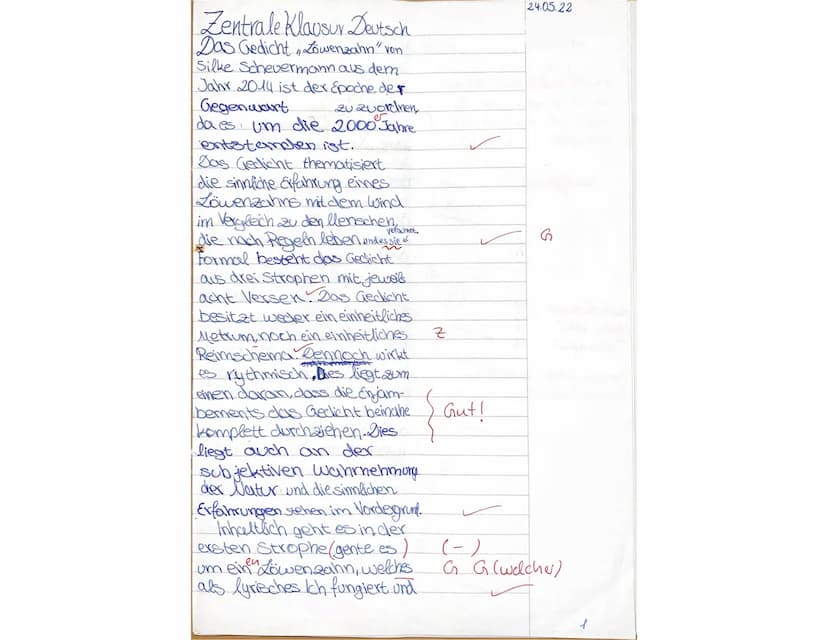 24.05.22
Zentrale Klausur Deutsch
Das Gedicht „Löwenzahn" von
Silke Scheuermann aus dem
Jahr 2014 ist der Epoche der
Gegenwart zu zuordnen,
da es um die 2000er Jahre
entstanden ist.
Das Gedicht thematisiert
die sinnliche Erfahrung eines
Löwenzahns mit dem Wind
im Vergleich zu den Menschen,
die nach Regeln leben G
Formal besteht das Gedicht
aus drei Strophen mit jeweils
acht Versen. Das Gedicht
besitzt weder ein einheitliches
Metrum, noch ein einheitliches Z
Reimschema. Dennoch wirkt
es rythmisch. Dies liegt zum
einen daran, dass die Enjam-
bements das Gedicht beinahe Gut!
komplett durchziehen. Dies
liegt auch an der
subjektiven Wahrnehmung
der Natur und die sinnlichen
Erfahrungen stehen im Vordergrund.
Inhaltlich geht es in der
ersten Strophe (gehte es) (-)
um einen Löwenzahn, welches G G (welcher)
als lyrisches Ich fungiert und
1